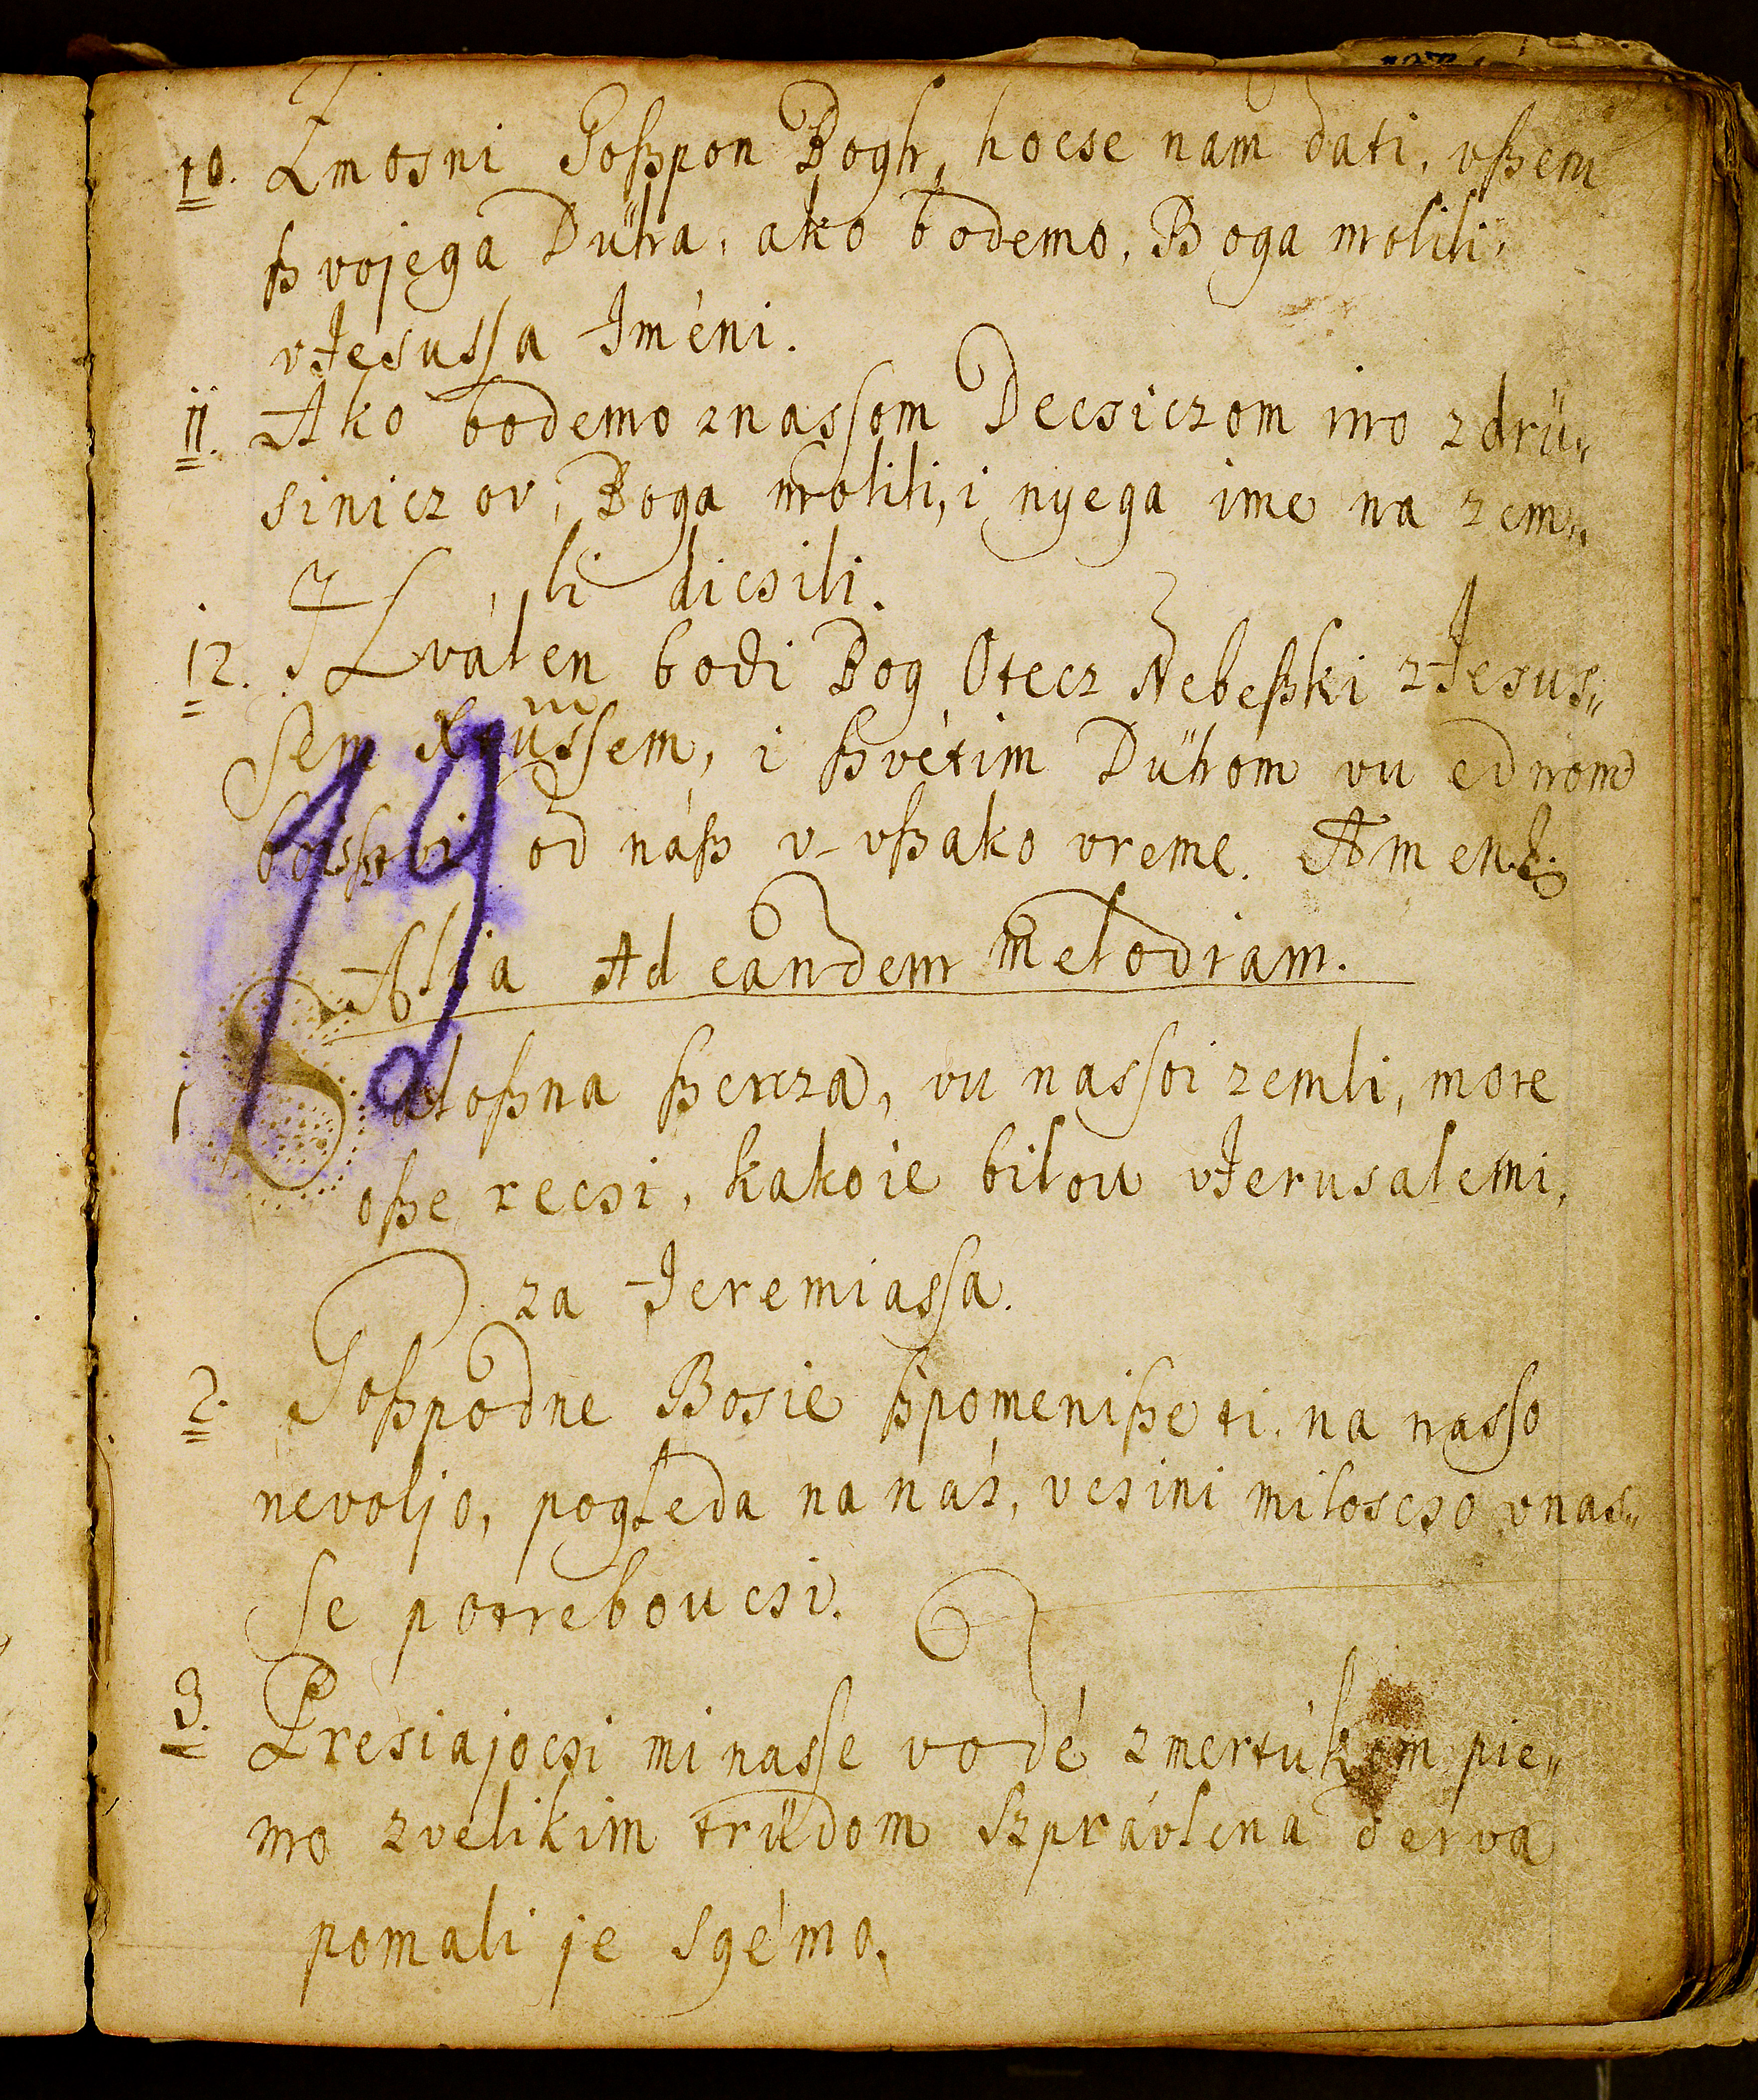 10. Zmosni Goßpon Bogh, hocse nam dati, vßem
ßvojega Dűha, ako bodemo, Boga molili,
vJesussa Iméni.
11. Ako bodemo znassom Decsiczom mo zdrü„
siniczov, Boga molili, i nyega ime na zem„
li dicsili.
12. Hválen bodi Bog Otecz Nebeßki zJesus„
sem , i ßvétim Dűhom vu ednom
od náß v-vßako vreme. Amen
19
Alia Ad eandem melodiam.
1 Saloßna ßercza, vu nassoi zemli, more
oße recsi, kakoie bilou vJerusalemi,
za Jeremiassa.
2. Goßpodne Bosie ßpomeniße ti na nasso
nevoljo, pogleda na nás, vcsini miloscso vnas„
se potreboucsi.
3. Presiajocsi mi nasse vodé zmertúkom pie„
mo zvelikim trüdom szprávlena derva
pomali je sgémo.